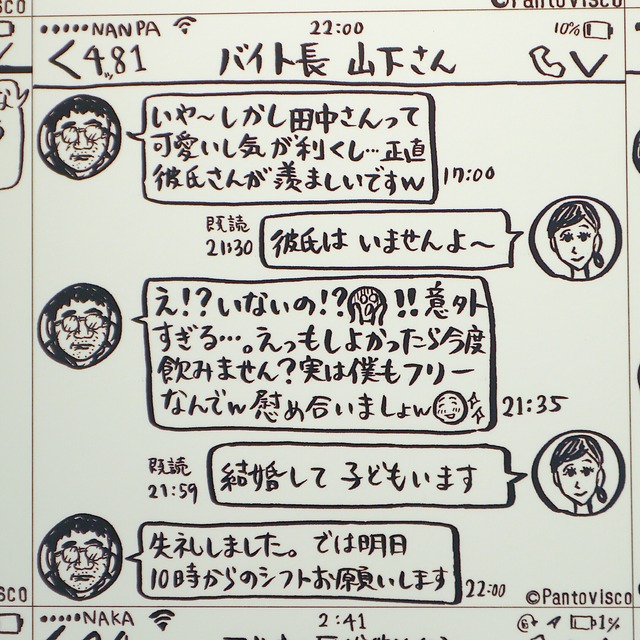 sco
©Pantovisco
•••••NANPA
22:00
10%
く4,81
バイト長 山下さん
いや〜しかし田中さんって
可愛いし気が利くし…正直
彼氏さんが羨ましいですw
17:00
既読
21:30
彼氏は いませんよ〜
え!?いないの!?!!意外
すぎる…。えっもしよかったら今度
飲みません?実は僕もフリー
なんでw慰め合いましょw
21:35
既読
21:59
結婚して 子どもいます
失礼しました。では明日
10時からのシフトお願いします
22:00
sco
©Pantovisco
•••••NAKA
2:41
1%